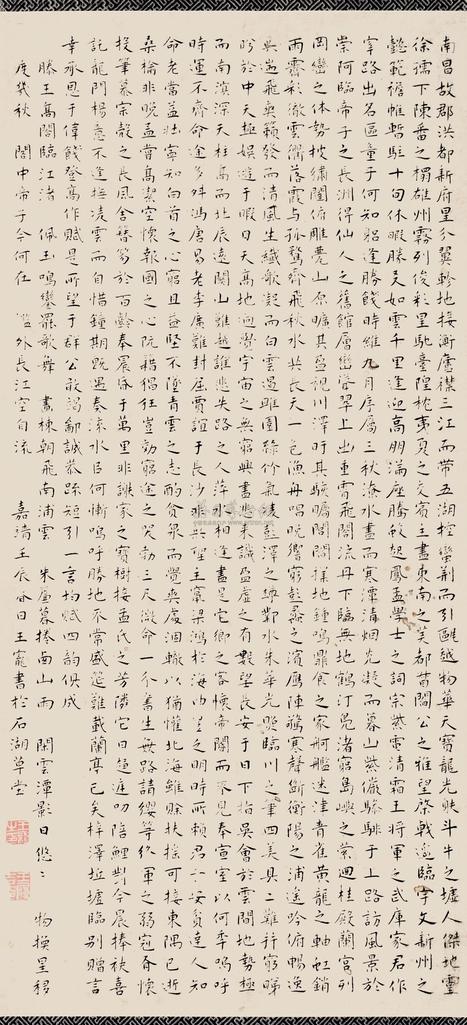 南昌故郡洪都新府星分翼軫地接衡廬襟三江而帶五湖控蠻荊而引甌越物華天寶龍光映斗牛之墟人傑地靈
徐孺下陳蕃之榻雄州霧列俊彩星馳臺隍枕夷夏之交賓主盡東南之美都督閻公之雅望棨戟遙臨宇文新州之
懿範襜帷暫駐十旬休暇勝友如雲千里逢迎高朋滿座騰蛟起鳳孟學士之詞宗紫電清霜王將軍之武庫家君作
宰路出名區童子何知躬逢勝餞時維九月序屬三秋潦水盡而寒潭清烟光凝而暮山紫儼驂騑于上路訪風景於
崇阿臨帝子之長洲得仙人之舊館層巒聳翠上出重霄飛閣流丹下臨無地鶴汀鳧渚窮島嶼之縈迴桂殿蘭宮列
岡巒之体勢披繡闥俯雕甍山原曠其盈視川澤盱其駭矚閭閻撲地鐘鳴鼎食之家舸艦迷津青雀黃龍之軸虹銷
雨霽彩徹雲衢落霞与孤鶩齊飛秋水共長天一色漁舟唱晚響窮彭蠡之濱雁陣驚寒聲斷衡陽之浦遙吟俯暢逸
興遄飛爽籟發而清風生纖歌凝而白雲遏睢園綠竹氣凌彭澤之樽鄴水朱華光照臨川之筆四美具二難并窮睇
眄於中天極娛遊于暇日天高地迥覺宇宙之無窮興盡悲來識盈虛之有數望長安于日下指吳會於雲間地勢極
而南溟深天柱高而北辰遠關山難越誰悲失路之人萍水相逢盡是它鄉之客懷帝閽而不見奉宣室以何年嗚呼
時運不齊命途多舛馮唐易老李廣難封屈賈誼于長沙非無聖主竄梁鴻於海曲豈乏明時所賴君子安貧達人知
命老當益壯寧知白首之心窮且益堅不墜青雲之志酌貪泉而覺爽處涸轍以猶懽北海雖賒扶搖可接東隅已逝
桑榆非晚孟嘗高潔空懷報國之心阮籍猖狂豈效窮途之哭勃三尺微命一介書生無路請纓等終軍之弱冠有懷
投筆慕宗愨之長風舍簪笏於百齡奉晨昏于萬里非謝家之寶樹接孟氏之芳隣它日趨庭叨陪鯉對今晨捧袂喜
託龍門楊意不逢撫凌雲而自惜鍾期既遇奏流水以何慚嗚呼勝地不常盛筵難載蘭亭已矣梓澤坵墟臨別贈言
幸承恩于偉餞登高作賦是所望于群公敢竭鄙誠恭疏短引一言均賦四韻俱成
滕王高閣臨江渚 佩玉鳴鸞罷歌舞 畫棟朝飛南浦雲 朱簾暮捲西山雨 閒雲潭影日悠〻 物換星移
度幾秋 閣中帝子今何在 檻外長江空自流 嘉靖壬辰春日王寵書於石湖草堂